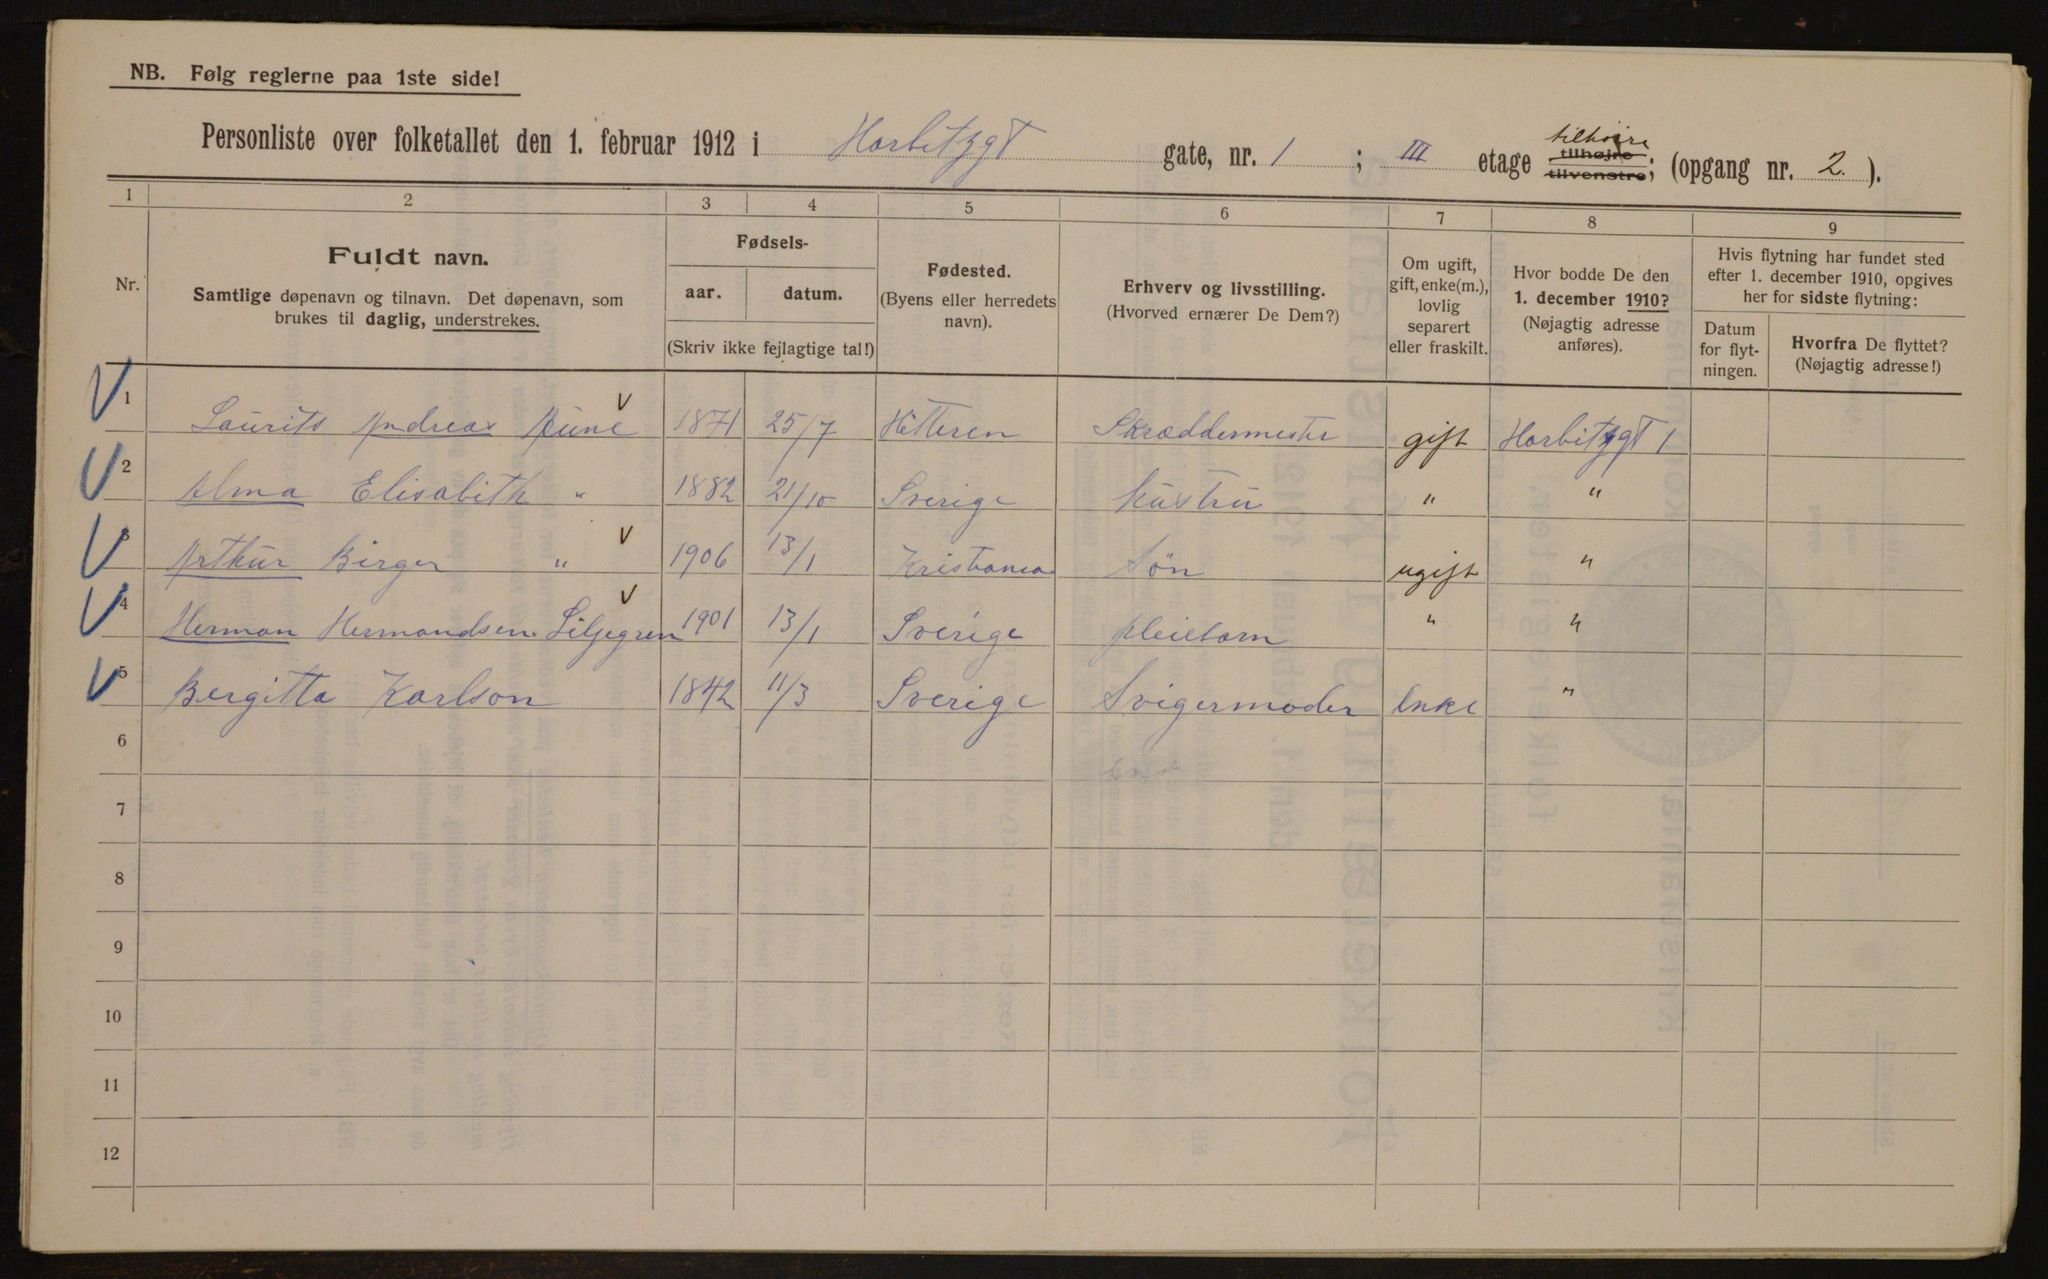 NB. Følg reglerne paa 1ste side!
Personliste over folketallet den 1. februar 1912 i Harbitzgt gate, nr. 1 ; III etage tilhøire tilhøjre tilvenstre; (opgang nr. 2. ).
1 2 3 4 5 6 7 8 9
Nr.
Fuldt navn.
Samtlige døpenavn og tilnavn. Det døpenavn, som
brukes til daglig, understrekes.
Fødsels-
aar. datum.
(Skriv ikke fejlagtige tal!)
Fødested.
(Byens eller herredets
navn).
Erhverv og livsstilling.
(Hvorved ernærer De Dem?)
Om ugift,
gift, enke(m.),
lovlig
separert
eller fraskilt.
Hvor bodde De den
1. december 1910?
(Nøjagtig adresse
anføres).
Hvis flytning har fundet sted
efter 1. december 1910, opgives
her for sidste flytning:
Datum
for flyt-
ningen.
Hvorfra De flyttet?
(Nøjagtig adresse!)
1 Laurits Andreas Aune 1871 25/7 Hitteren Skræddermester gift Harbitzgt 1
2 Alma Elisabith " 1882 21/10 Sverige Hustru " "
3 Arthur Birger " 1906 13/1 Kristiania Søn ugift "
4 Herman Hermandsen Liljegren 1901 13/1 Sverige pleiebarn " "
5 Bergitta Karlson 1842 11/3 Sverige Svigermoder Enke "
6
7
8
9
10
11
12